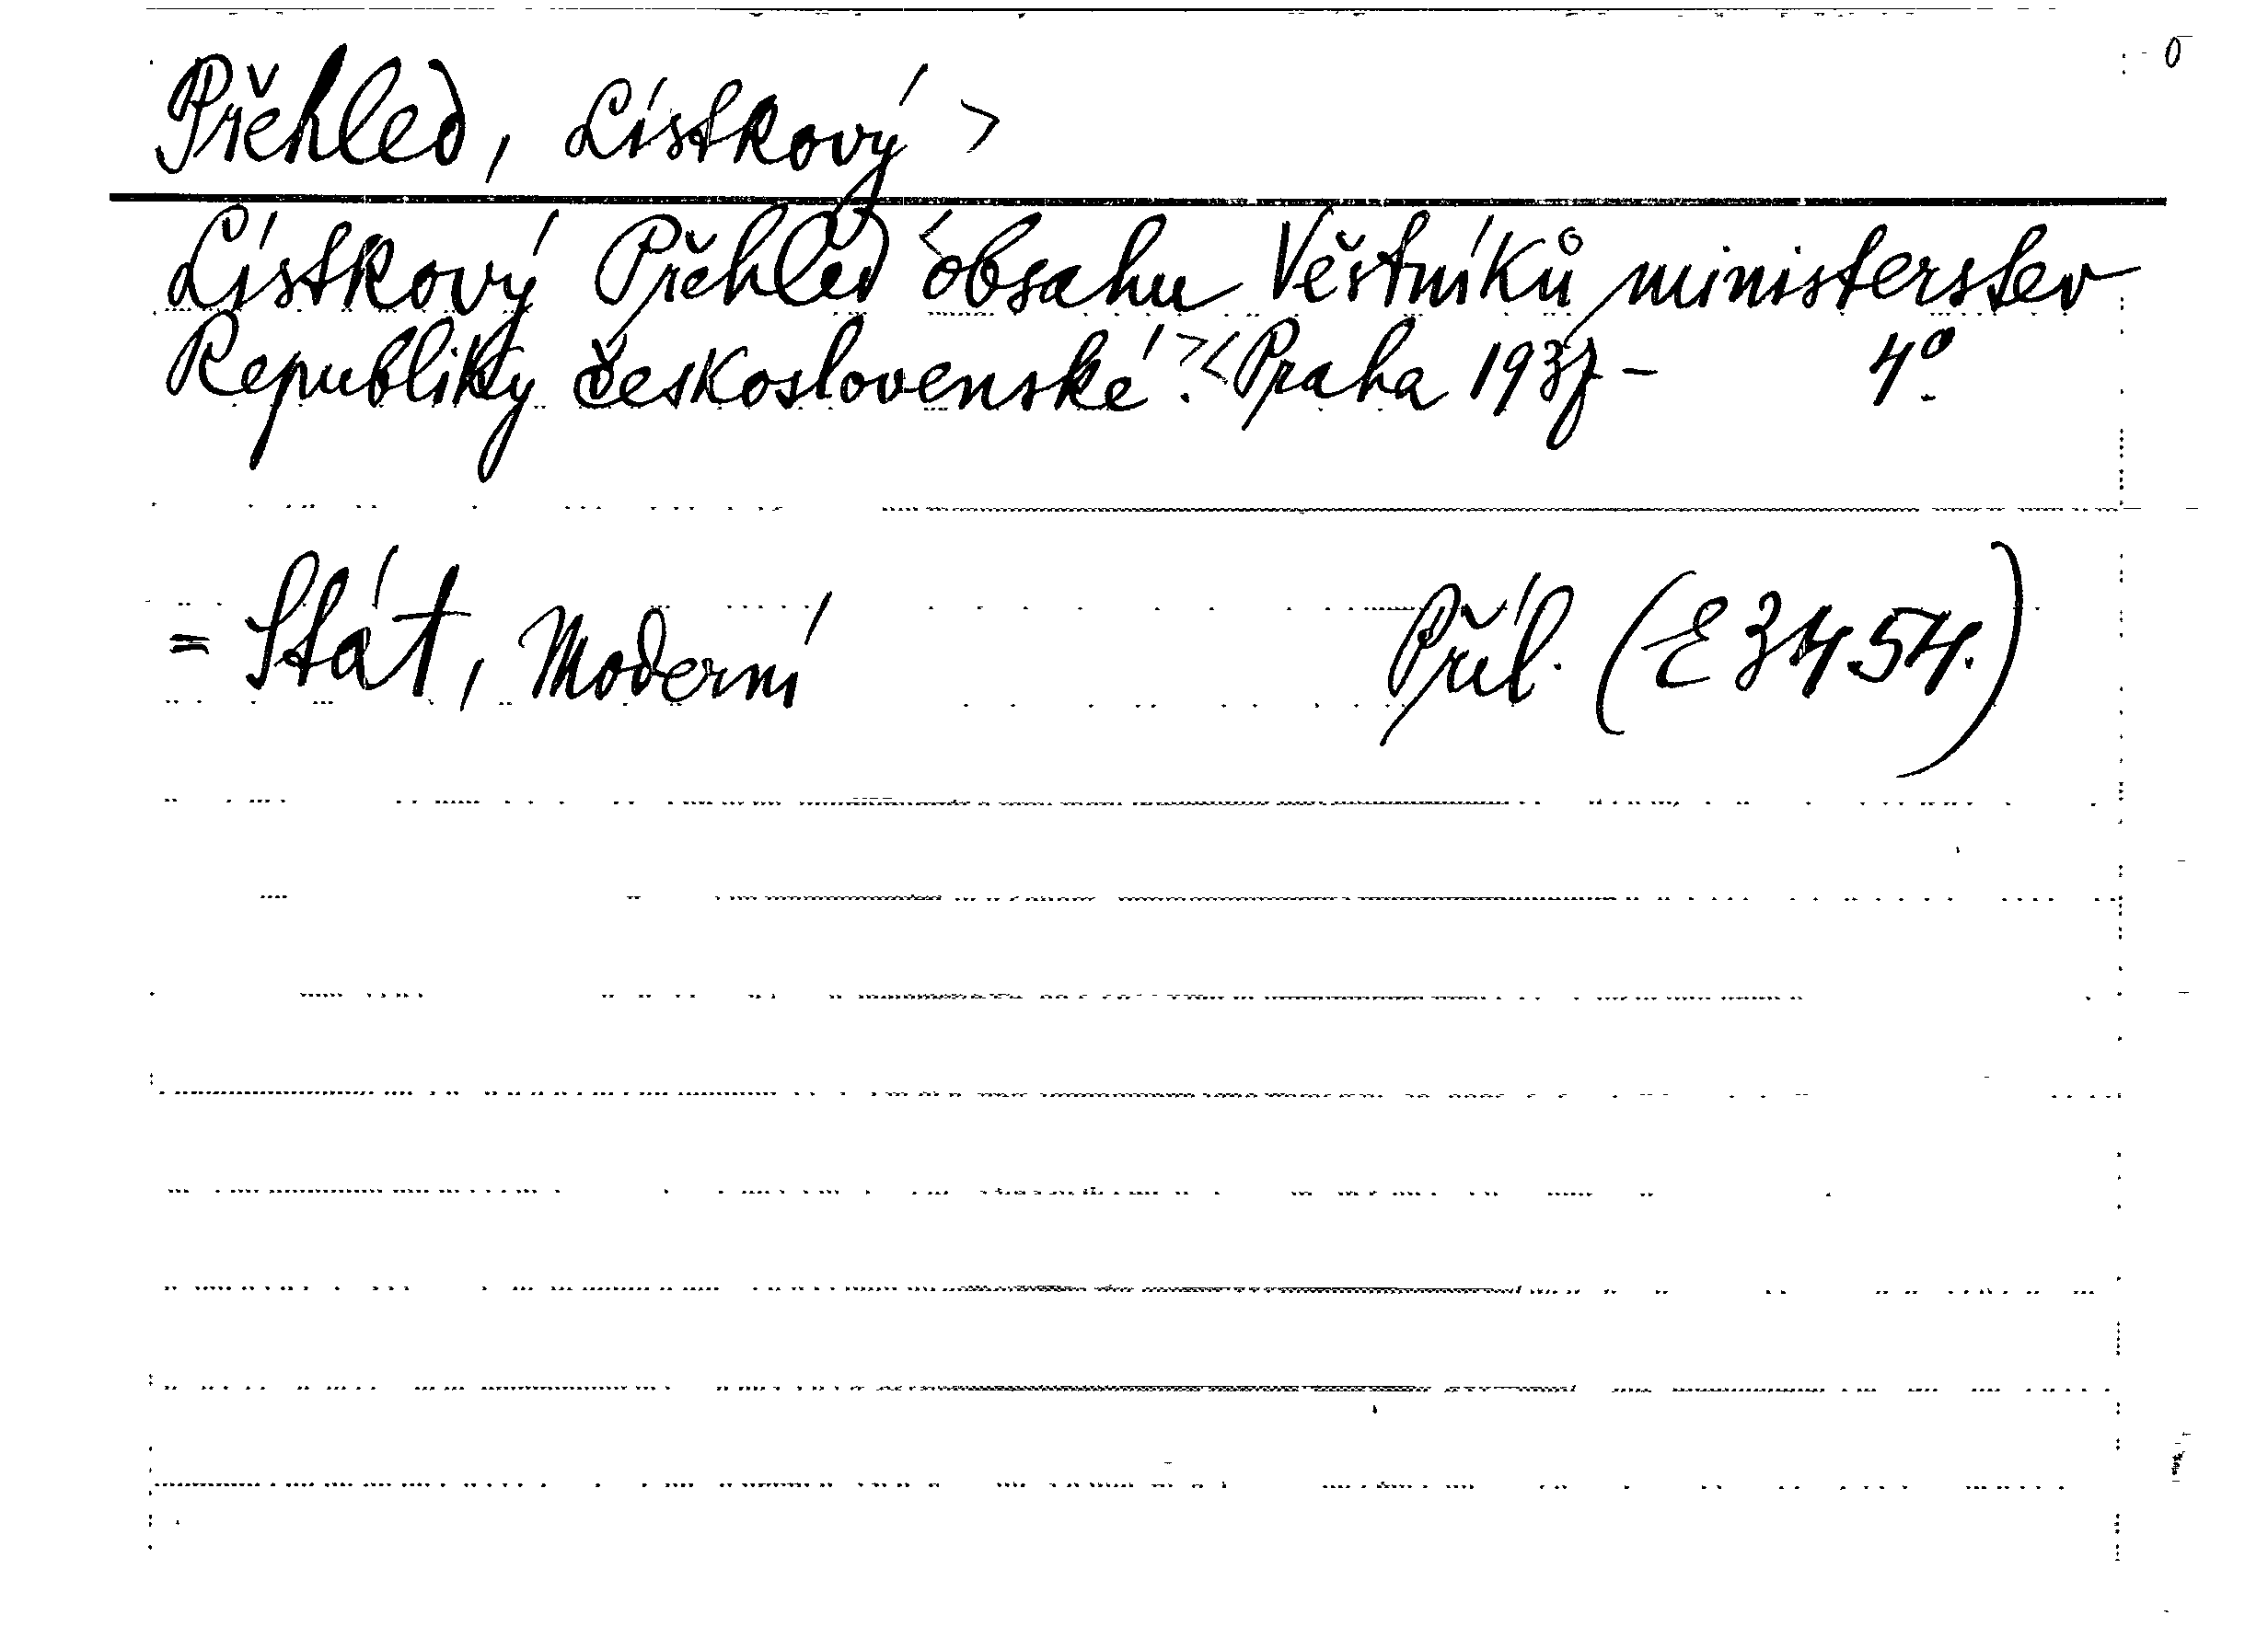 0
Přehled, Lístkový >
Lístkový Přehled <obsahu Věstníků ministerstev
Republiky československé.> <Praha 1937- 4°.
= Stát, Moderní Příl. (E 3454.)